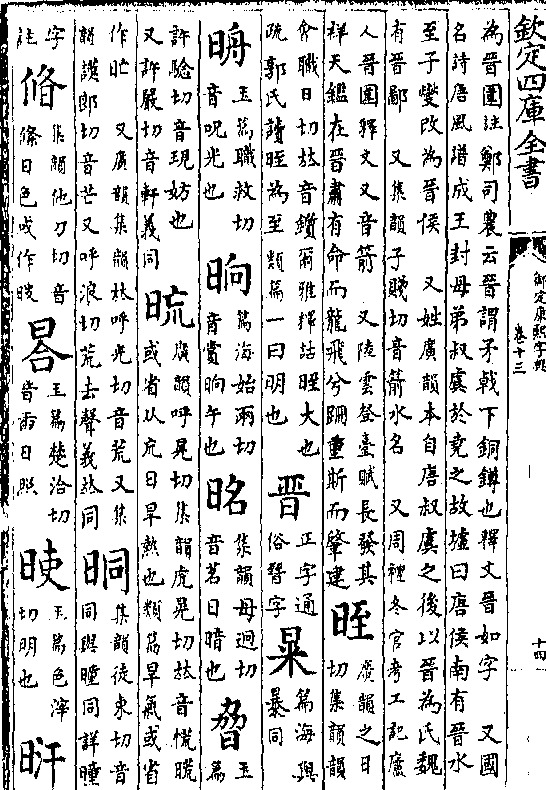 欽定四庫全書
御定康熙字典
卷十三
十四
為晉圍註鄭司農云晉謂矛戟下銅鐏也釋文晉如字 又國
名詩唐風譜成王封母弟叔虞於堯之故墟曰唐侯南有晉水
至子燮改為晉侯 又姓廣韻本自唐叔虞之後以晉為氏魏
有晉鄙 又集韻子賤切音箭水名 又周禮冬官考工記廬
人晉圍釋文又音箭 又陸雲登臺賦長發其
祥天鑑在晉肅有命而龍飛兮跚重斯而肇建
晊 廣韻之日
切集韻韻
會職日切𠀤音鑕爾雅釋詁晊大也
疏郭氏讀晊為至類篇一曰明也
晋 正字通
俗晉字
篇海與
暴同
玉篇職救切
音呪光也
晌 篇海始兩切
音賞晌午也
集韻母迥切
音茗日暗也
玉
篇
許驗切音現妨也
又許嚴切音軒義同
廣韻呼晃切集韻虎晃切𠀤音慌
或省从日旱熱也類篇旱氣或省
作 又廣韻集韻𠀤呼光切音荒又集
韻謨郎切音茫又呼浪切荒去聲義𠀤同
晍 集韻徒東切音
同與曈同詳曈
字
註
集韻他刀切音
日色或作
玉篇楚洽切
日照
玉篇色滓
切明也